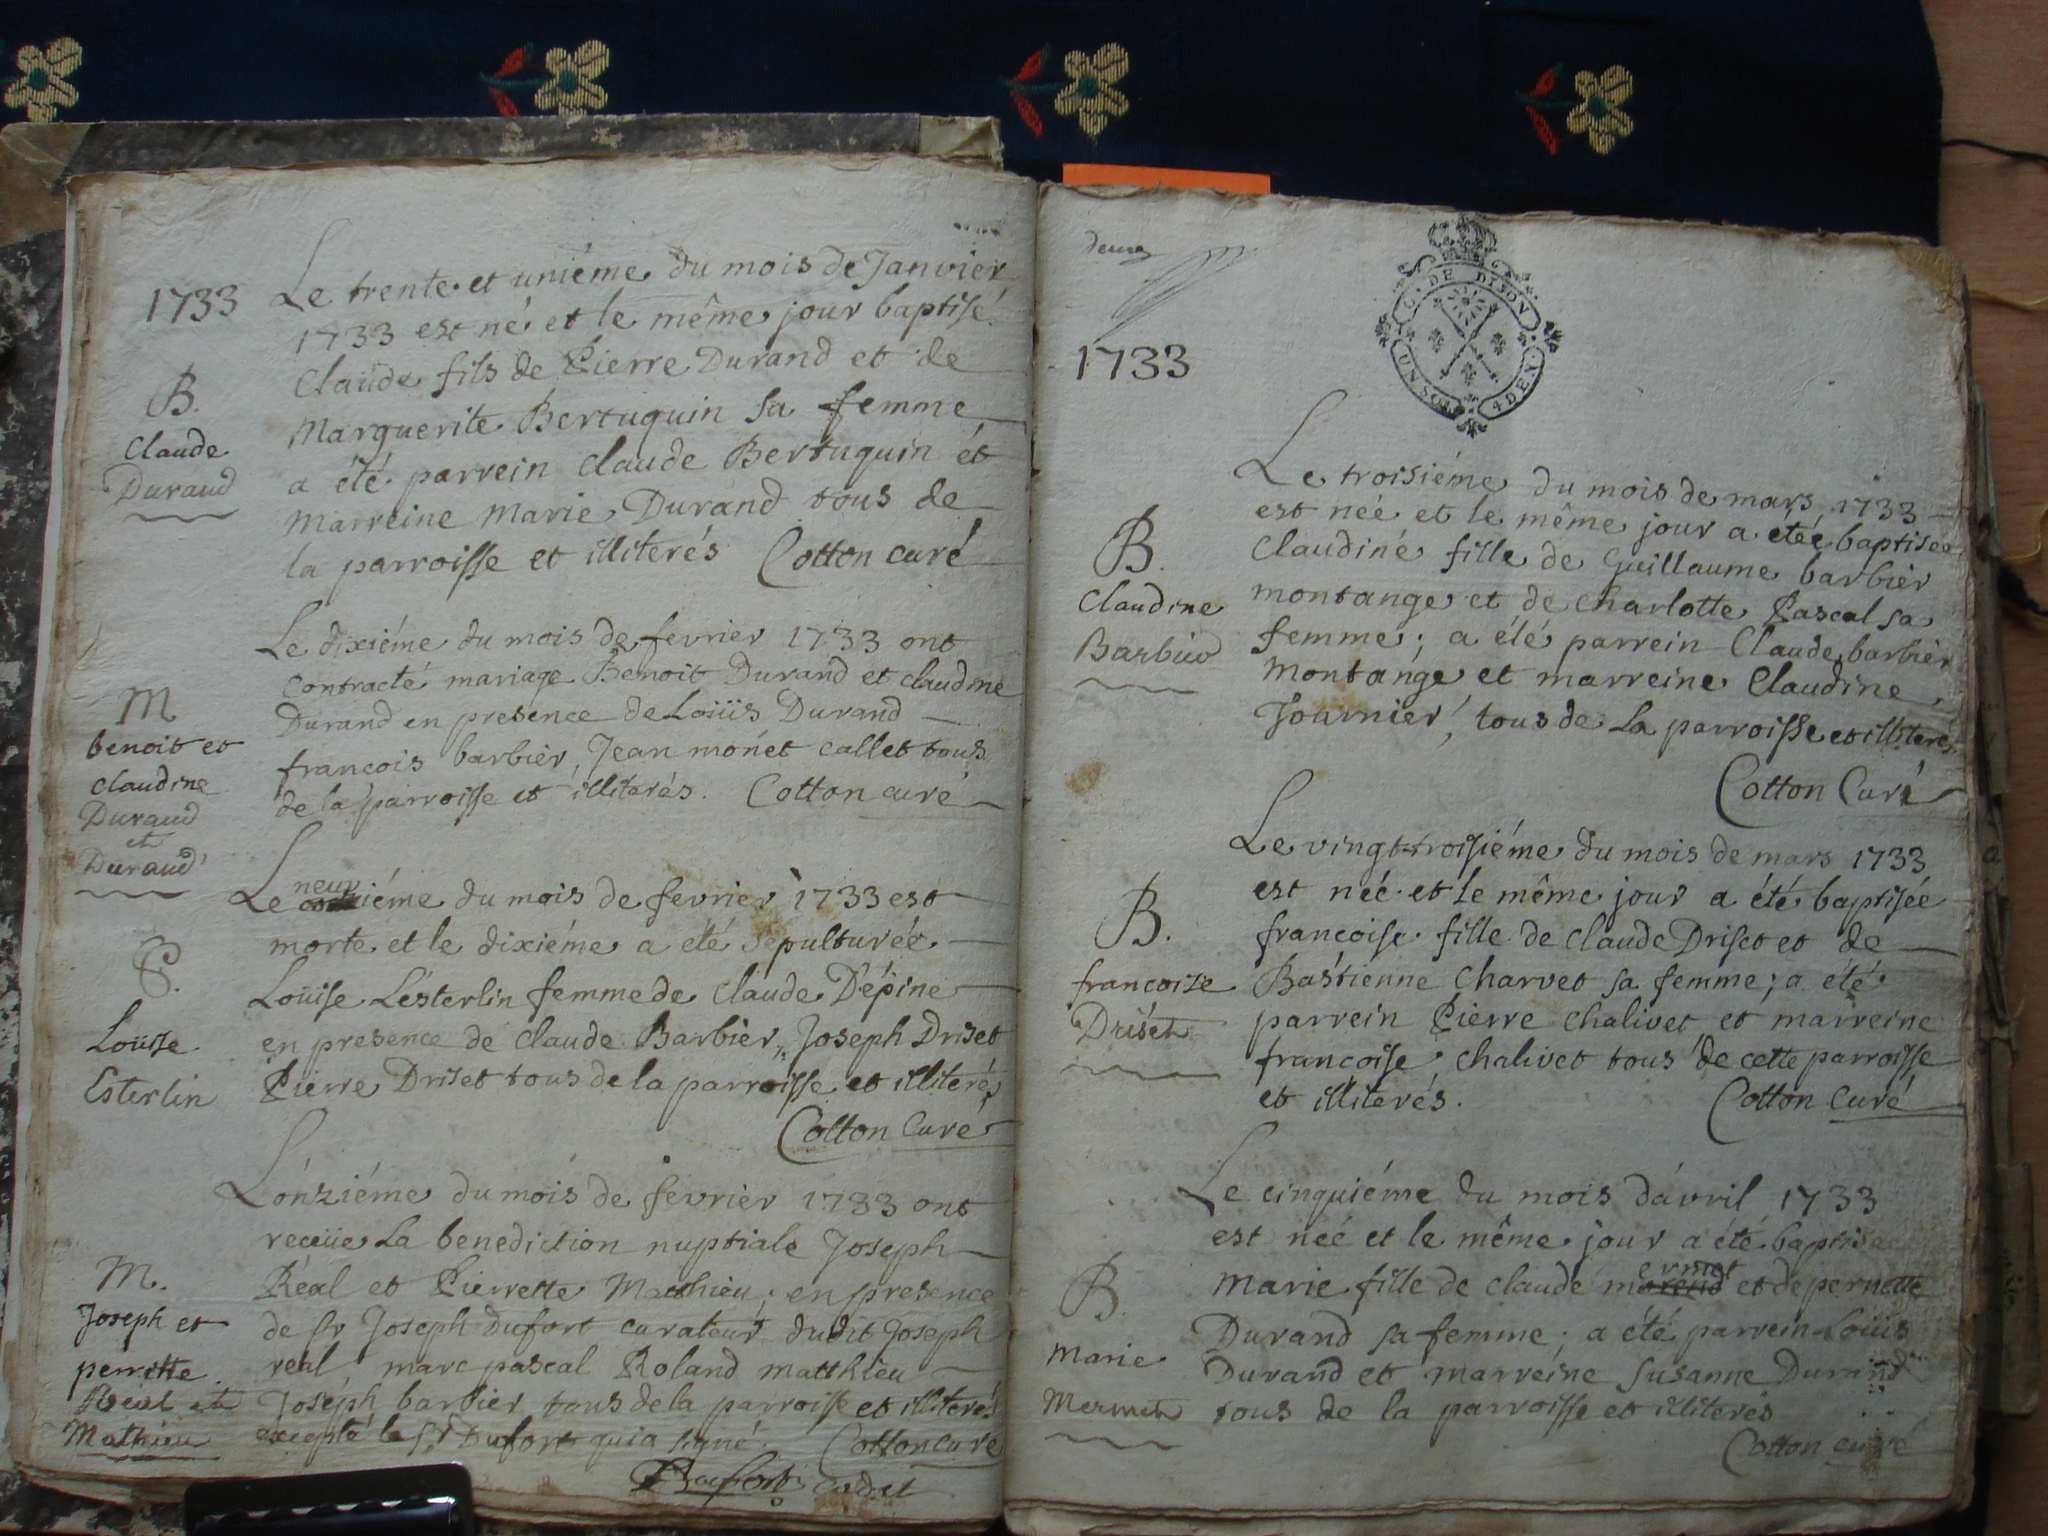 1733
Le trente et uniéme du mois de Janvier
1733 est né et le même jour baptisé
Claude fils de Pierre Durand et de
Marguerite Bertuquin sa femme
a été parrein Claude Bertuquin et
marreine Marie Durand tous de
la parroisse et illiterés Cotton curé
B.
Claude
Durand
Le dixiéme du mois de fevrier 1733 ont
contracté mariage Benoit Durand et claudine
Durand en presence de Loüis Durand
francois barbier, Jean monet callet tous
de la parroisse et illiterés. Cotton curé
M
benoit et
claudine
Durand
et
Durand
Le neuviéme du mois de fevrier 1733 est
morte et le dixiéme a été sepulturée
Loüise Lésterlin femme de Claude D'épine
en presence de Claude Barbier, Joseph Driset
Pierre Driset tous de la parroisse et illiterés
Cotton Curé
S.
Loüise
Esterlin
L'onziéme du mois de fevrier 1733 ont
receüe La benediction nuptiale Joseph
Réal et Pierrette Matthieu; en presence
de Sr Joseph Dufort curateur dudit Joseph
real marc pascal Roland matthieu
Joseph barbier tous de la parroisse et illiterés
excepté le Sr Dufort qui a signé. Cotton curé
Dufort cadet
M.
Joseph et
perrette
Real et
Mathieu
deux
1733
G. DE DIJON
UN SOL 4 DEN.
Le troisiéme du mois de mars 1733
est née et le même jour a étée baptisée
Claudine fille de Guillaume barbier
montange et de charlotte Pascal sa
femme; a été parrein Claude barbier
Montange et marreine Claudine
Fournier, tous de La parroisse et illiterés
Cotton Curé
B.
Claudine
Barbier
Le vingt troisiéme du mois de mars 1733
est née et le même jour a été baptisée
francoise fille de Claude Driset et de
Bastienne Charvet sa femme; a été
parrein Pierre chalivet et marreine
francoise chalivet tous de cette parroisse
et illiterés. Cotton Curé
B.
francoise
Driset
Le cinquiéme du mois d'avril 1733
est née et le même jour a été baptisée
Marie fille de claude mermet et de pernette
Durand sa femme; a été parrein Loüis
Durand et marreine Susanne Durand
tous de la parroisse et illiterés
Cotton curé
B
Marie
Mermet